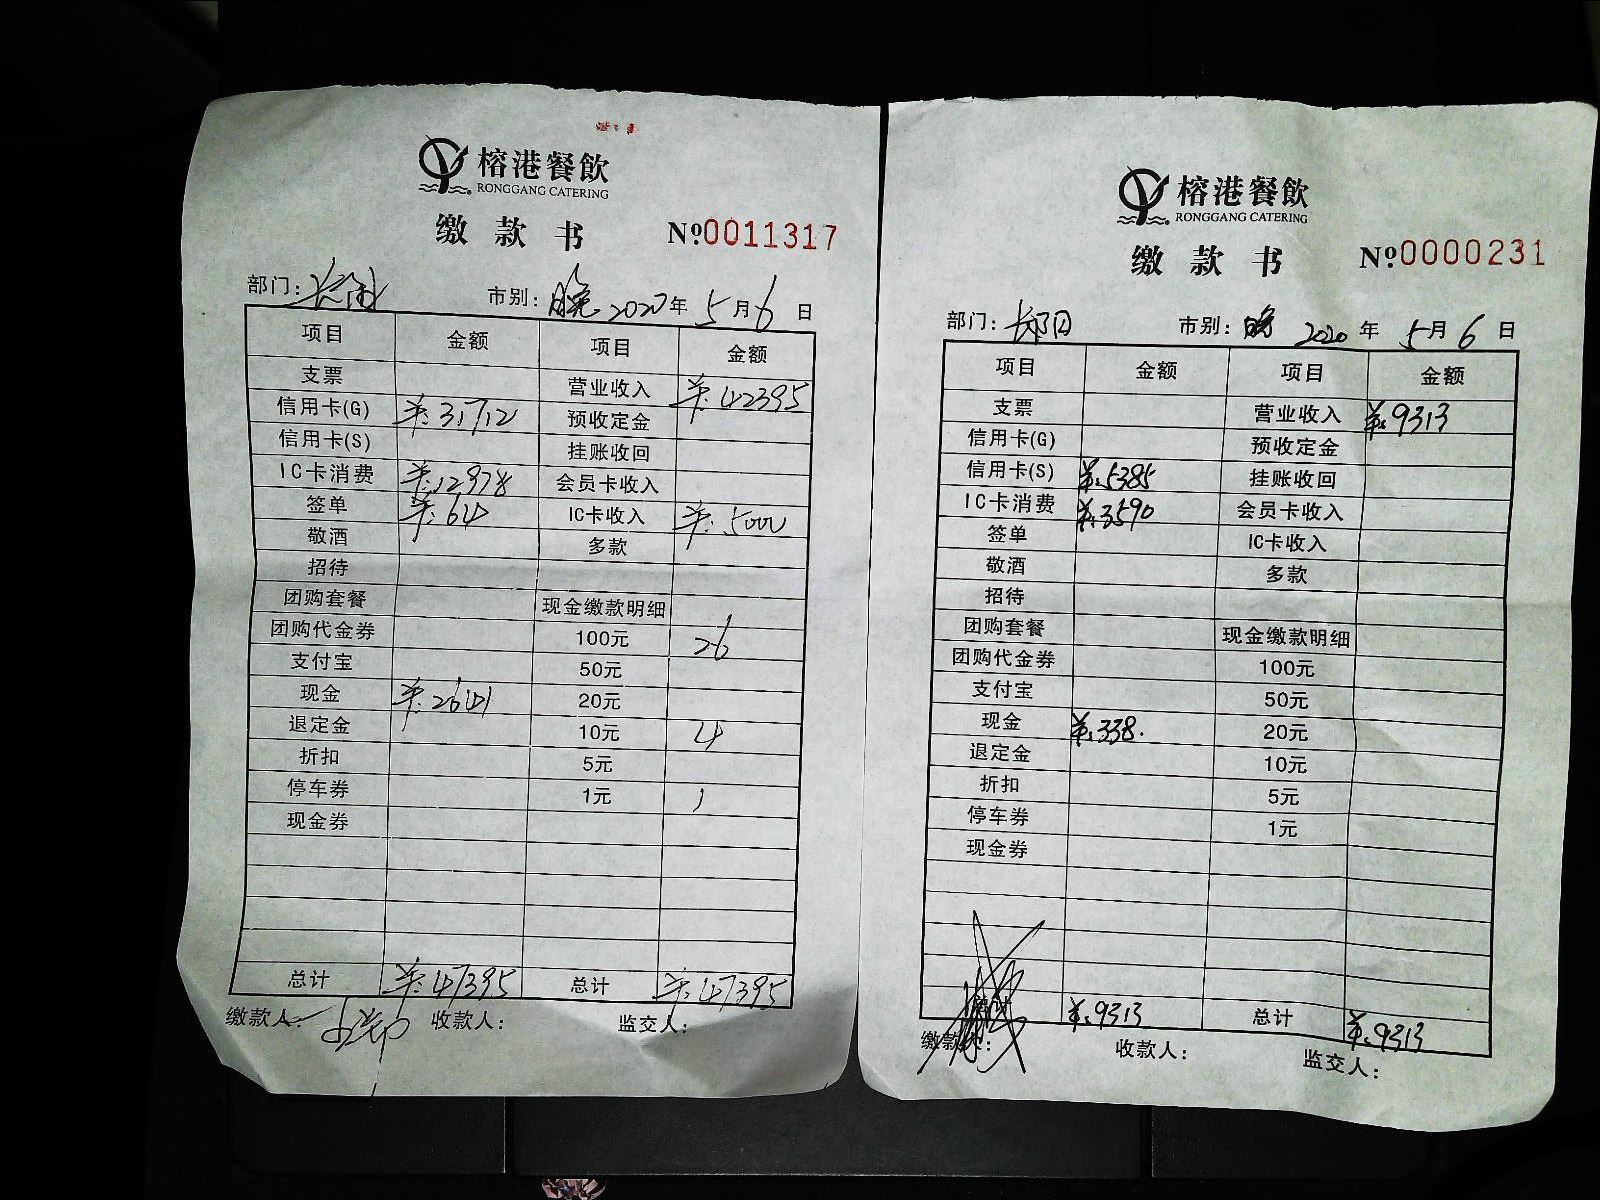 榕港餐飲
RONGGANG CATERING
缴款书 №0011317
部门: 市别: 晚 2020年 5月6日
项目 金额 项目 金额
支票 营业收入 ¥:42395
信用卡(G) ¥:31712 预收定金
信用卡(S) 挂账收回
IC卡消费 ¥:12978 会员卡收入
签单 ¥:64 IC卡收入 ¥:5000
敬酒 多款
招待
团购套餐 现金缴款明细
团购代金券 100元 26
支付宝 50元
现金 ¥:2641 20元
退定金 10元 4
折扣 5元
停车券 1元 1
现金券
总计 ¥:47395 总计 ¥:47395
缴款人: 收款人: 监交人:
榕港餐飲
RONGGANG CATERING
缴款书 №0000231
部门: 市别: 晚 2020年 5月6日
项目 金额 项目 金额
支票 营业收入 ¥:9313
信用卡(G) 预收定金
信用卡(S) ¥:5385 挂账收回
IC卡消费 ¥:3590 会员卡收入
签单 IC卡收入
敬酒 多款
招待
团购套餐 现金缴款明细
团购代金券 100元
支付宝 50元
现金 ¥:338. 20元
退定金 10元
折扣 5元
停车券 1元
现金券
总计 ¥:9313 总计 ¥:9313
缴款人: 收款人: 监交人: